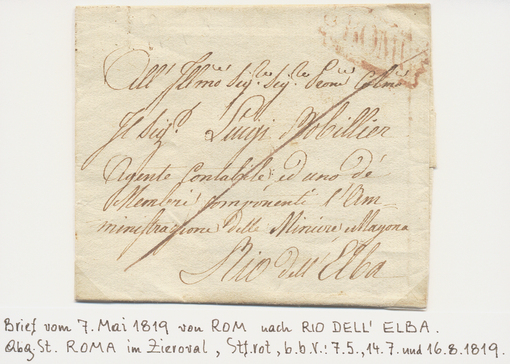 ROMA
All' Illmo Sigre Sigre Prone Colmo
Il Sigr Luigi Robillier
Agente Contabile ed uno de'
Membri componenti l'Am-
ministrazione delle Miniere, e Magona
Rio dell'Elba
Brief vom 7. Mai 1819 von ROM nach RIO DELL' ELBA.
Abg.St. ROMA im Zieroval, Stf.rot, b.b.V.: 7.5., 14.7. und 16.8.1819.